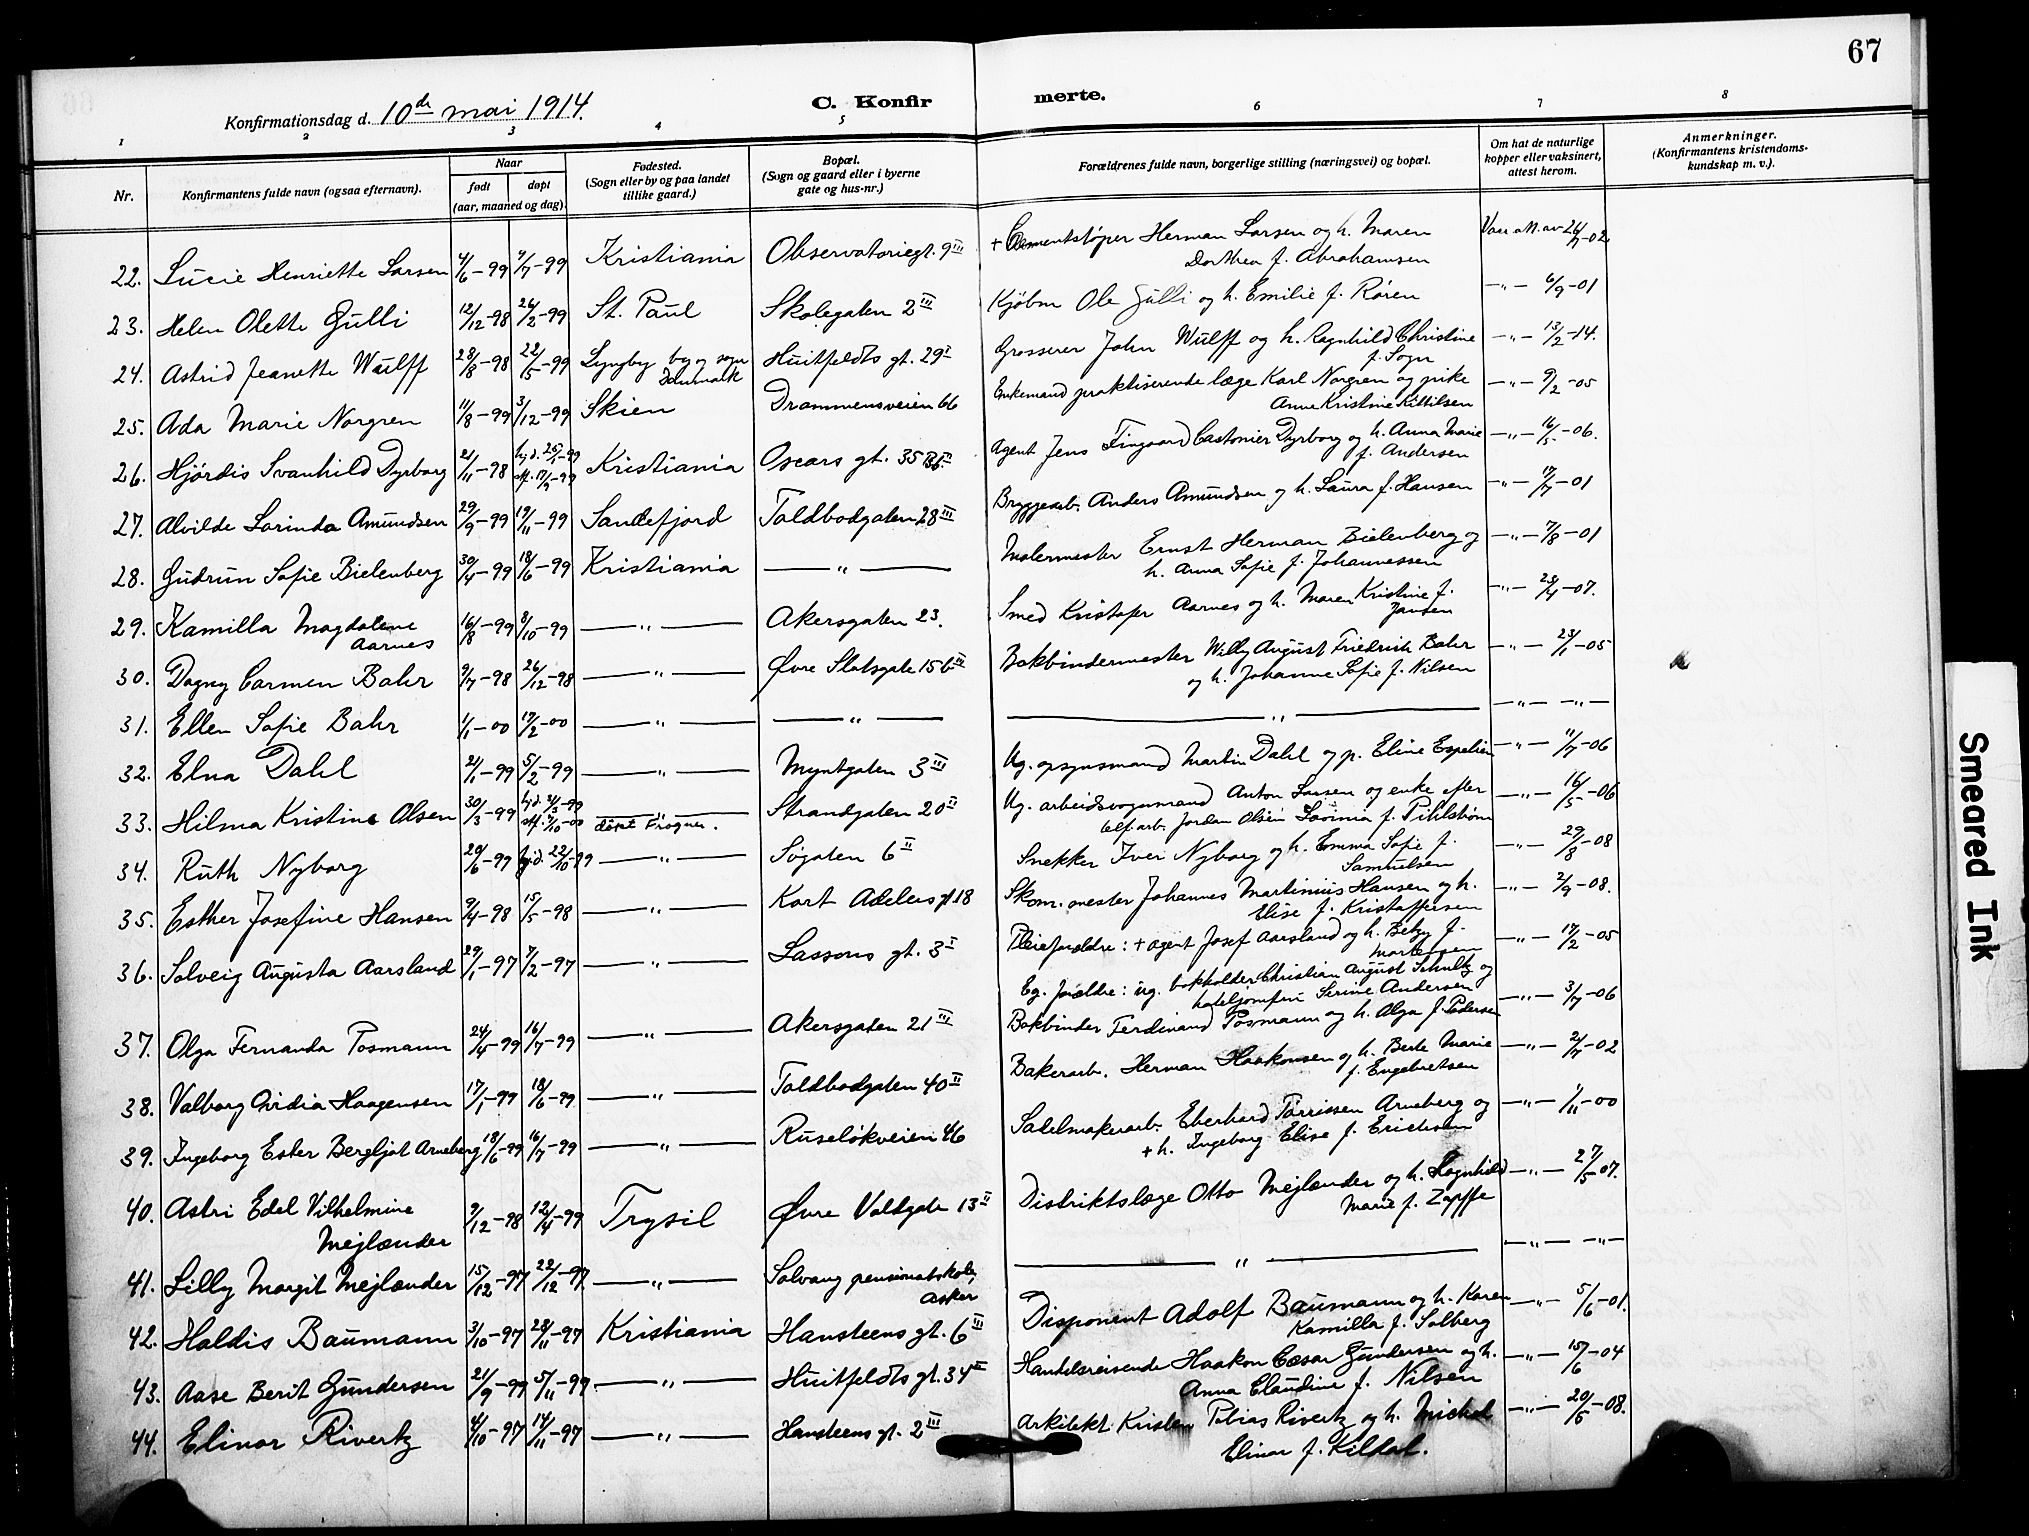 67
Konfirmationsdag d. 10de mai 1914.
C. Konfirmerte.
1 2 3 4 5 6 7 8
Nr. Konfirmantens fulde navn (ogsaa efternavn). Naar født døpt (aar, maaned og dag). Fødested. (Sogn eller by og paa landet tillike gaard.) Bopæl. (Sogn og gaard eller i byerne gate og hus-nr.) Forældrenes fulde navn, borgerlige stilling (næringsvei) og bopæl. Om hat de naturlige kopper eller vaksinert, attest herom. Anmerkninger. (Konfirmantens kristendomskundskap m. v.).
22. Lucie Henriette Larsen 4/6-99 9/7-99 Kristiania Observatoriegt. 9 III + Cementstøper Herman Larsen og h. Maren Vacc. att. av 26/7-02
Dorthea f. Abrahamsen
23. Helen Olette Gulli 12/12-98 26/2-99 St. Paul Skolegaten 2 III Kjøbm Ole Gulli og h. Emilie f. Røren -"- 6/9-01
24. Astrid Jeanette Wulff 28/8-98 22/5-99 Lyngby by og sogn Danmark Huitfeldts gt. 29 I Grosserer John Wulff og h. Ragnhild Christine -"- 13/2-14.
f. Sogn
25. Ada Marie Norgren 11/8-99 3/12-99 Skien Drammensveien 66 Enkemand praktiserende læge Karl Norgren og pike -"- 9/2-05
Anna Kristine Kittilsen
26. Hjørdis Svanhild Dyrborg 21/11-98 hjd. 25/1-99 stf. 17/9-99 Kristiania Oscars gt. 35 Agent Jens Castonier Dyrborg og h. Anna Marie -"- 16/5-06.
f. Andersen
27. Alvilde Lorinda Amundsen 29/9-99 19/11-99 Sandefjord Toldbodgaten 28 III Bryggearb. Anders Amundsen og h. Laura f. Hansen -"- 17/7-01
28. Gudrun Sofie Bielenberg 30/4-99 18/6-99 Kristiania -"- Malermester Ernst Herman Bielenberg og -"- 7/8-01
h. Anna Sofie f. Johannessen
29. Kamilla Magdalene Aarnes 16/8-99 8/10-99 -"- Akersgaten 23. Smed Kristofer Aarnes og h. Maren Kristine f. -"- 28/4-07.
Jansen
30. Dagny Carmen Bahr 9/7-98 26/12-98 -"- Øvre Slotsgate 15 b III Bokbindermester Willy August Friedrich Bahr -"- 23/1-05
og h. Johanne Sofie f. Nilsen
31. Ellen Sofie Bahr 1/1-00 17/2-00 -"- -"- -"- -"- -"-
32. Elna Dahl 21/1-99 5/2-99 -"- Myntgaten 3 III Ug. opsynsmand Martin Dahl og p. Eline Espelien -"- 11/7-06
33. Hilma Kristine Olsen 30/3-99 hjd. 31/3-99 stf. 7/10-00 -"- døpt Frogner. Strandgaten 20 II Ug. arbeidsvognmand Anton Larsen og enke efter -"- 16/5-06
telf. arb. Jordan Olsen Lovinia f. Pihlstrøm
34. Ruth Nyborg 20/6-99 hjd. 22/10-99 -"- Søgaten 6 II Snekker Iver Nyborg og h. Emma Sofie f. -"- 29/8-08
Samuelsen
35. Esther Josefine Hansen 9/4-98 15/5-98 -"- Kort Adelers gt 18 Skom. mester Johannes Martinius Hansen og h. -"- 2/9-08.
Elise f. Kristoffersen
36. Solveig Augusta Aarsland 29/1-97 7/2-97 -"- Lassons gt. 3 I Pleieforældre: + agent Josef Aarsland og h. Betzy f. -"- 17/2-05
Mortensen
Eg. forældre: ug. bokholder Christian August Schultz og
hoteljomfru Serine Andersen
37. Olga Fernanda Posmann 24/4-99 16/7-99 -"- Akersgaten 21 III Bokbinder Ferdinand Posmann og h. Olga f. Pedersen -"- 3/7-06
38. Valborg Ovidia Haagensen 17/1-99 18/6-99 -"- Toldbodgaten 40 II Bakerarb. Herman Haakonsen og h. Berte Marie -"- 2/7-02
f. Engebretsen
39. Ingeborg Ester Bergljot Arneberg 18/6-99 16/7-99 -"- Ruseløkveien 46 Salelmakerarb. Eberhard Tørrissen Arneberg og -"- 1/11-00
+ h. Ingeborg Elise f. Erichsen
40. Astri Edel Vilhelmine Mejlænder 9/12-98 12/4-99 Trysil Øvre Voldgate 13 II Distriktslæge Otto Mejlænder og h. Ragnhild -"- 27/5-07.
Marie f. Zapffe
41. Lilly Margit Mejlænder 15/12-97 22/12-97 -"- Solvang pensionatskole, Asker -"- -"- -"-
42. Haldis Baumann 3/10-97 28/11-97 Kristiania Hansteens gt. 6 III Disponent Adolf Baumann og h. Karen -"- 5/6-01.
Kamilla f. Solberg
43. Aase Berit Gundersen 21/9-99 5/11-99. -"- Huitfeldts gt. 34 II Handelsreisende Haakon Cæsar Gundersen og h. -"- 15/6-04
Anna Claudine f. Nilsen
44. Elinor Rivertz 4/10-97 14/11-97 -"- Hansteens gt. 2 III Arkitekt Kristen Tobias Rivertz og h. Michal -"- 20/5-08.
Elinor f. Kildal.
Smeared Ink